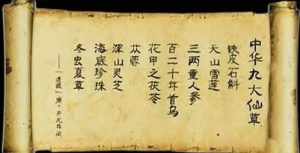 中华九大仙草
铁皮石斛
天山雪莲
三两重人参
百二十年首乌
花甲之茯苓
苁蓉
深山灵芝
海底珍珠
冬虫夏草